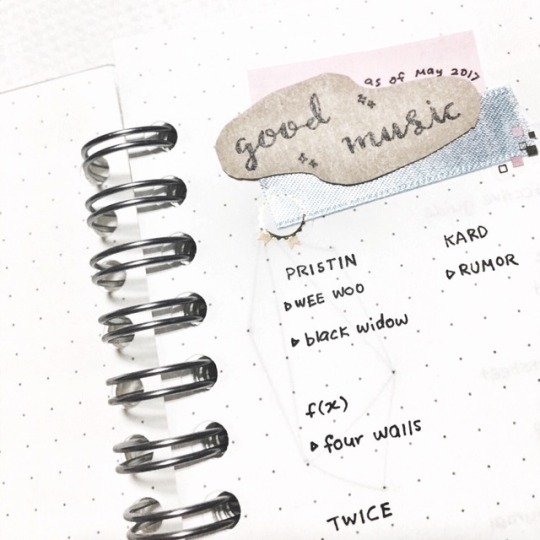 as of May 2017
good music
PRISTIN
WEE WOO
black widow
KARD
RUMOR
f(x)
four walls
TWICE